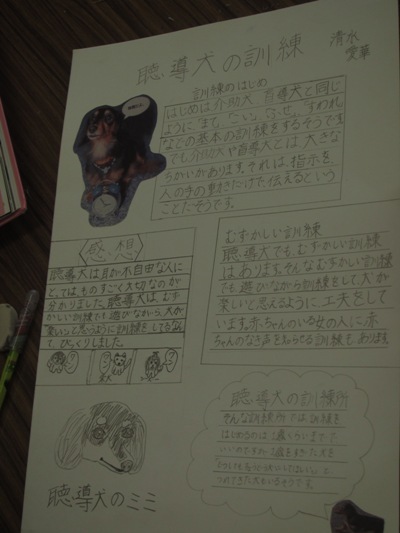 聴導犬の訓練
清水
愛華
訓練のはじめ
はじめは介助犬、盲導犬と同じ
ように「まて、こい、ふせ、すわれ
などの基本の訓練をするそうです
でも介助犬や盲導犬とは大きな
ちがいがあります。それは、指示を、
人の手の動きだけで伝えるという
ことだそうです。
感想
聴導犬は耳が不自由な人に
とっては、ものすごく大切なのが
分かりました。聴導犬は、むず
かしい訓練でも遊びながら、犬が
楽しいと思うように訓練をしてるなん
て、びっくりしました。
むずかしい訓練
聴導犬でも、むずかしい訓練
はあります。そんなむずかしい訓練
でも遊びながら訓練をして、犬が
楽しいと思えるように、工夫をして
います。赤ちゃんのいる女の人に赤
ちゃんのなき声を知らせる訓練も、あります
聴導犬の訓練所
そんな訓練所では、訓練を
はじめるのは
聴導犬のミミ